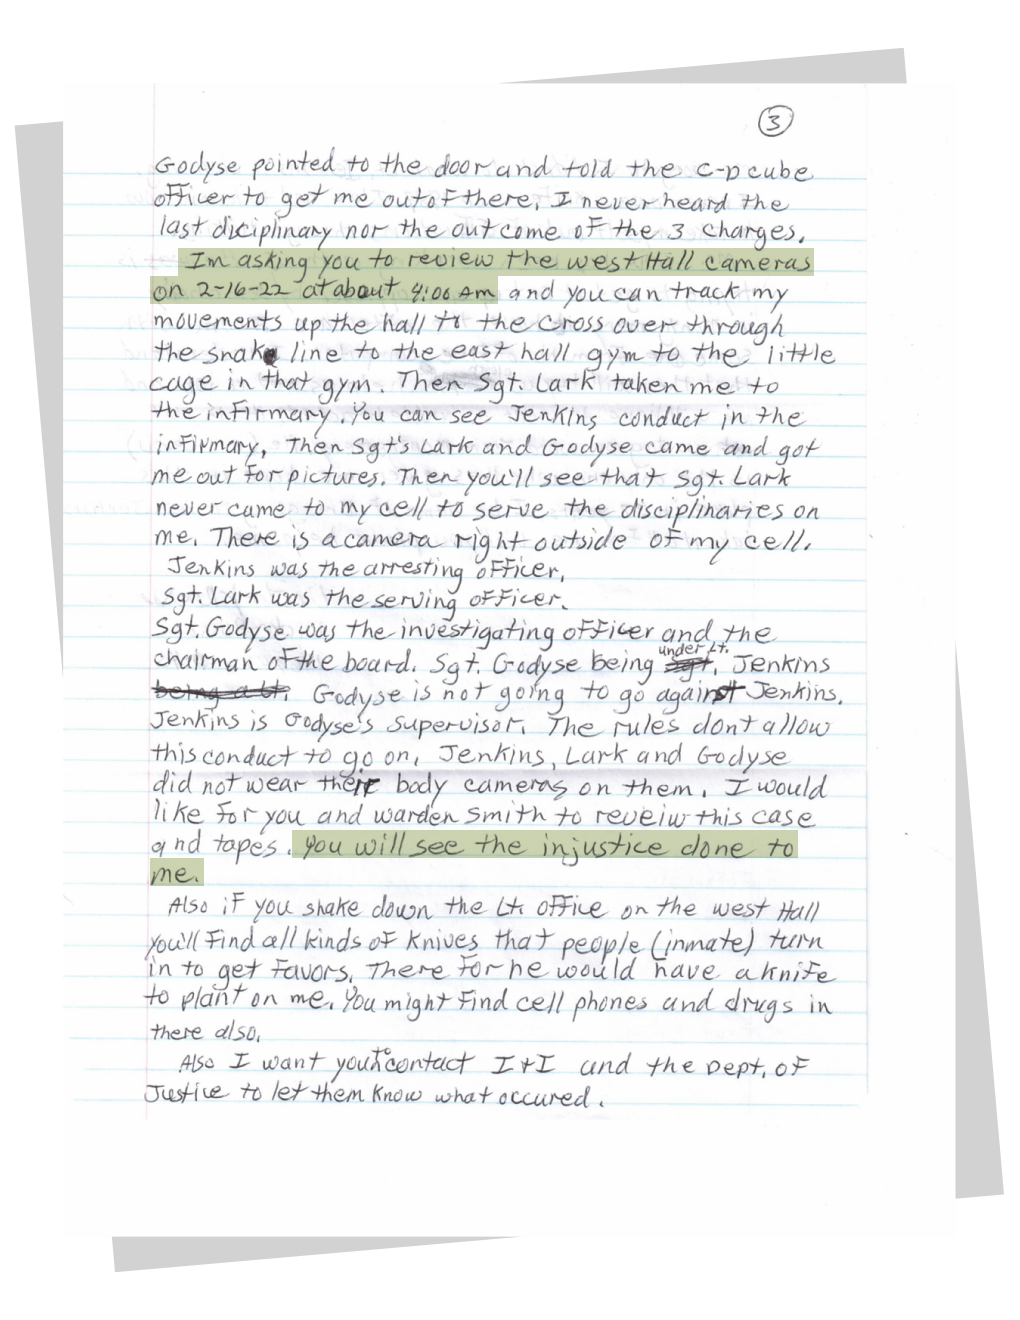 3
Godyse pointed to the door and told the C-D cube
officer to get me out of there. I never heard the
last disciplinary nor the out come of the 3 charges.
Im asking you to review the west Hall cameras
on 2-16-22 at about 4:00 Am and you can track my
movements up the hall to the cross over through
the snake line to the east hall gym to the little
cage in that gym. Then Sgt. Lark taken me to
the infirmary. You can see Jenkins conduct in the
infirmary, Then Sgt's Lark and Godyse came and got
me out for pictures. Then you'll see that Sgt. Lark
never came to my cell to serve the disciplinaries on
me. There is a camera right outside of my cell.
Jenkins was the arresting officer.
Sgt. Lark was the serving officer.
Sgt. Godyse was the investigating officer and the
chairman of the board. Sgt. Godyse being under Lt. Jenkins
being a Lt. Godyse is not going to go against Jenkins.
Jenkins is Godyse's supervisor. The rules dont allow
this conduct to go on, Jenkins, Lark and Godyse
did not wear their body cameras on them. I would
like for you and warden Smith to reveiw this case
and tapes. You will see the injustice done to
me.
Also if you shake down the Lt. office on the west Hall
you'll find all kinds of knives that people (inmate) turn
in to get favors. There for he would have a knife
to plant on me. You might find cell phones and drugs in
there also.
Also I want you to contact I+I and the Dept. of
Justice to let them know what occured.